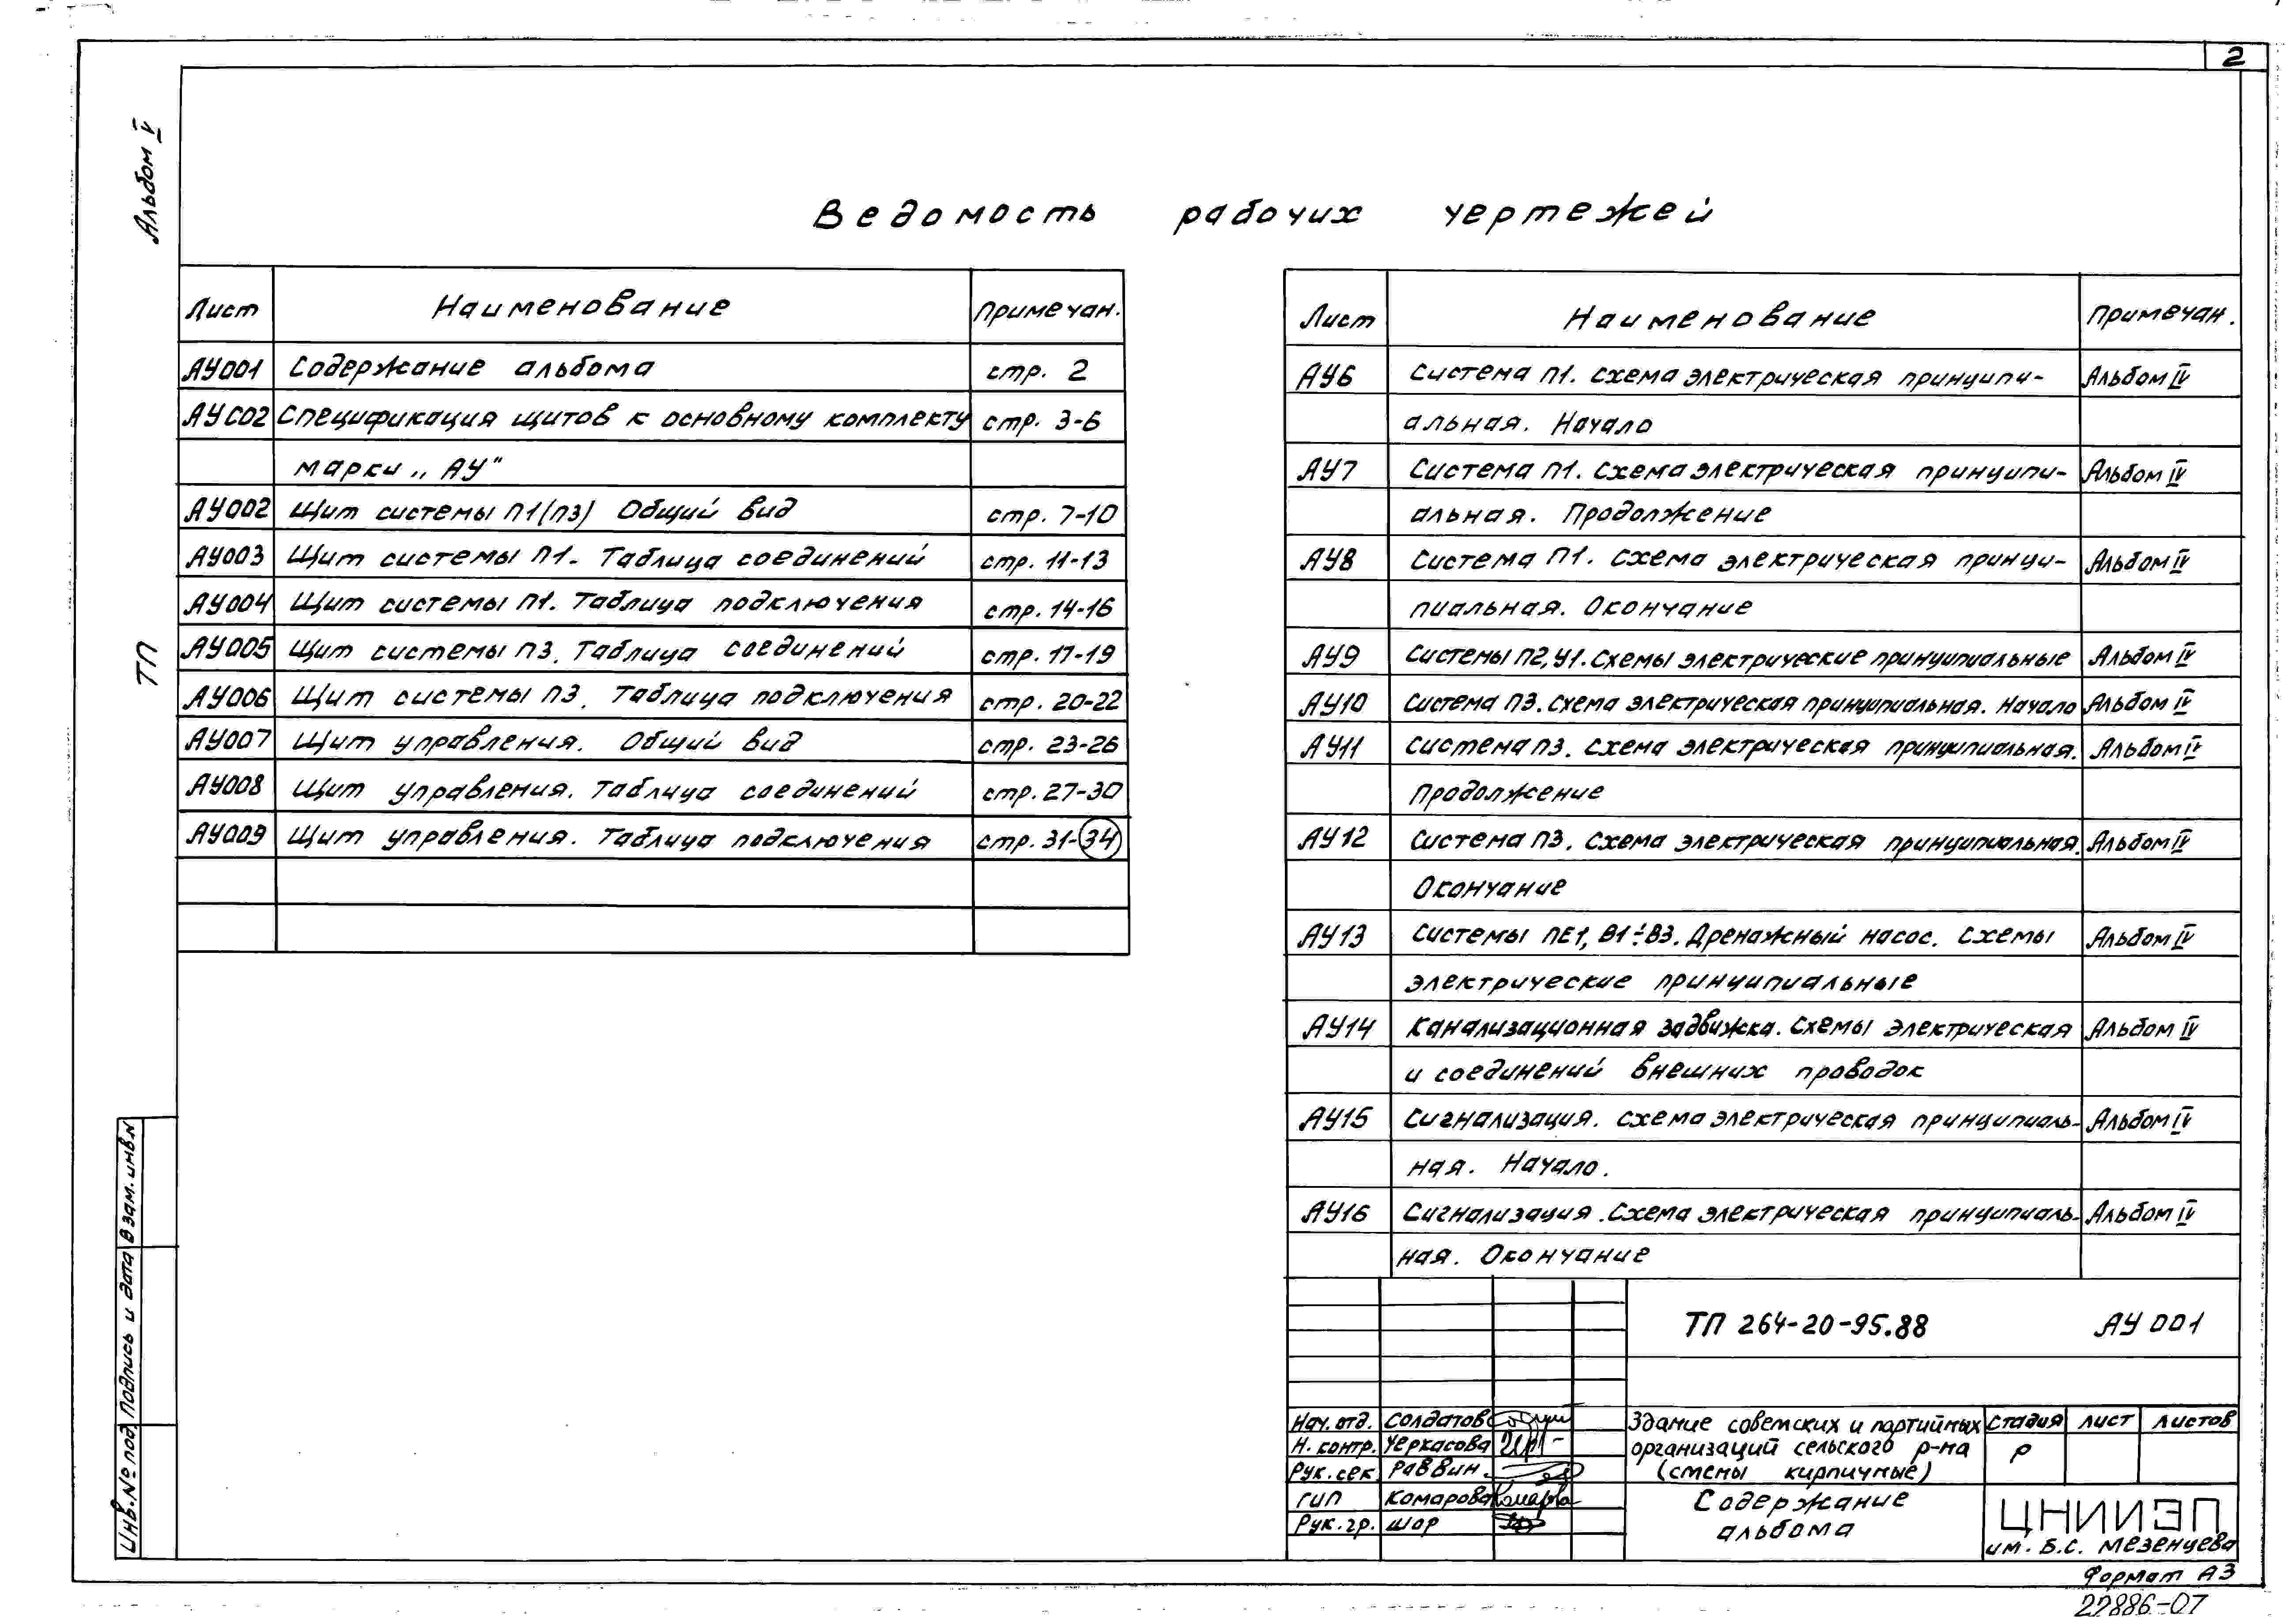 2
Альбом V
ТП
Ведомость рабочих чертежей
Лист Наименование Примечан.
АУ001 Содержание альбома стр. 2
АУС02 Спецификация щитов к основному комплекту стр. 3-6
марки „АУ"
АУ002 Щит системы П1(П3) Общий вид стр. 7-10
АУ003 Щит системы П1. Таблица соединений стр. 11-13
АУ004 Щит системы П1. Таблица подключения стр. 14-16
АУ005 Щит системы П3. Таблица соединений стр. 17-19
АУ006 Щит системы П3. Таблица подключения стр. 20-22
АУ007 Щит управления. Общий вид стр. 23-26
АУ008 Щит управления. Таблица соединений стр. 27-30
АУ009 Щит управления. Таблица подключения стр. 31-34
Лист Наименование Примечан.
АУ6 Система П1. Схема электрическая принципи- Альбом IV
альная. Начало
АУ7 Система П1. Схема электрическая принципи- Альбом IV
альная. Продолжение
АУ8 Система П1. Схема электрическая принци- Альбом IV
пиальная. Окончание
АУ9 Системы П2, У1. Схемы электрические принципиальные Альбом IV
АУ10 Система П3. Схема электрическая принципиальная. Начало Альбом IV
АУ11 Система П3. Схема электрическая принципиальная. Альбом IV
Продолжение
АУ12 Система П3. Схема электрическая принципиальная. Альбом IV
Окончание
АУ13 Системы ПЕ1, В1÷В3. Дренажный насос. Схемы Альбом IV
электрические принципиальные
АУ14 Канализационная задвижка. Схемы электрическая Альбом IV
и соединений внешних проводок
АУ15 Сигнализация. Схема электрическая принципиаль- Альбом IV
ная. Начало.
АУ16 Сигнализация. Схема электрическая принципиаль- Альбом IV
ная. Окончание
ТП 264-20-95.88 АУ 001
Нач. отд. Солдатов
Н. контр. Черкасова
Рук. сек. Раввин.
ГИП Комарова
Рук. гр. Шор
Здание советских и партийных
организаций сельского р-на
(стены кирпичные)
Стадия Лист Листов
Р
Содержание
альбома
ЦНИИЭП
им. Б.С. Мезенцева
Формат А3
22886-07
Взам. инв.N
Подпись и дата
Инв. № под.